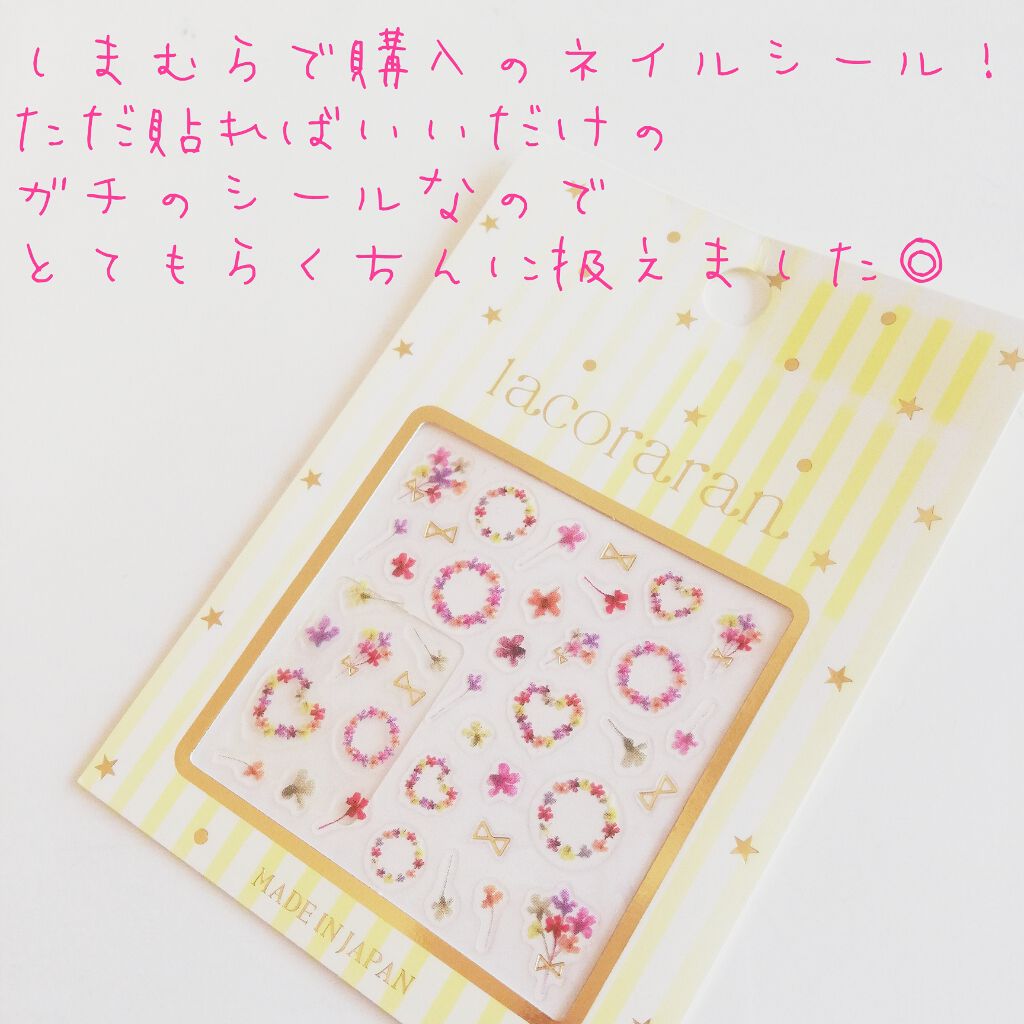 しまむらで購入のネイルシール！
ただ貼ればいいだけの
ガチのシールなので
とてもらくちんに扱えました◎
lacoraran
MADE IN JAPAN